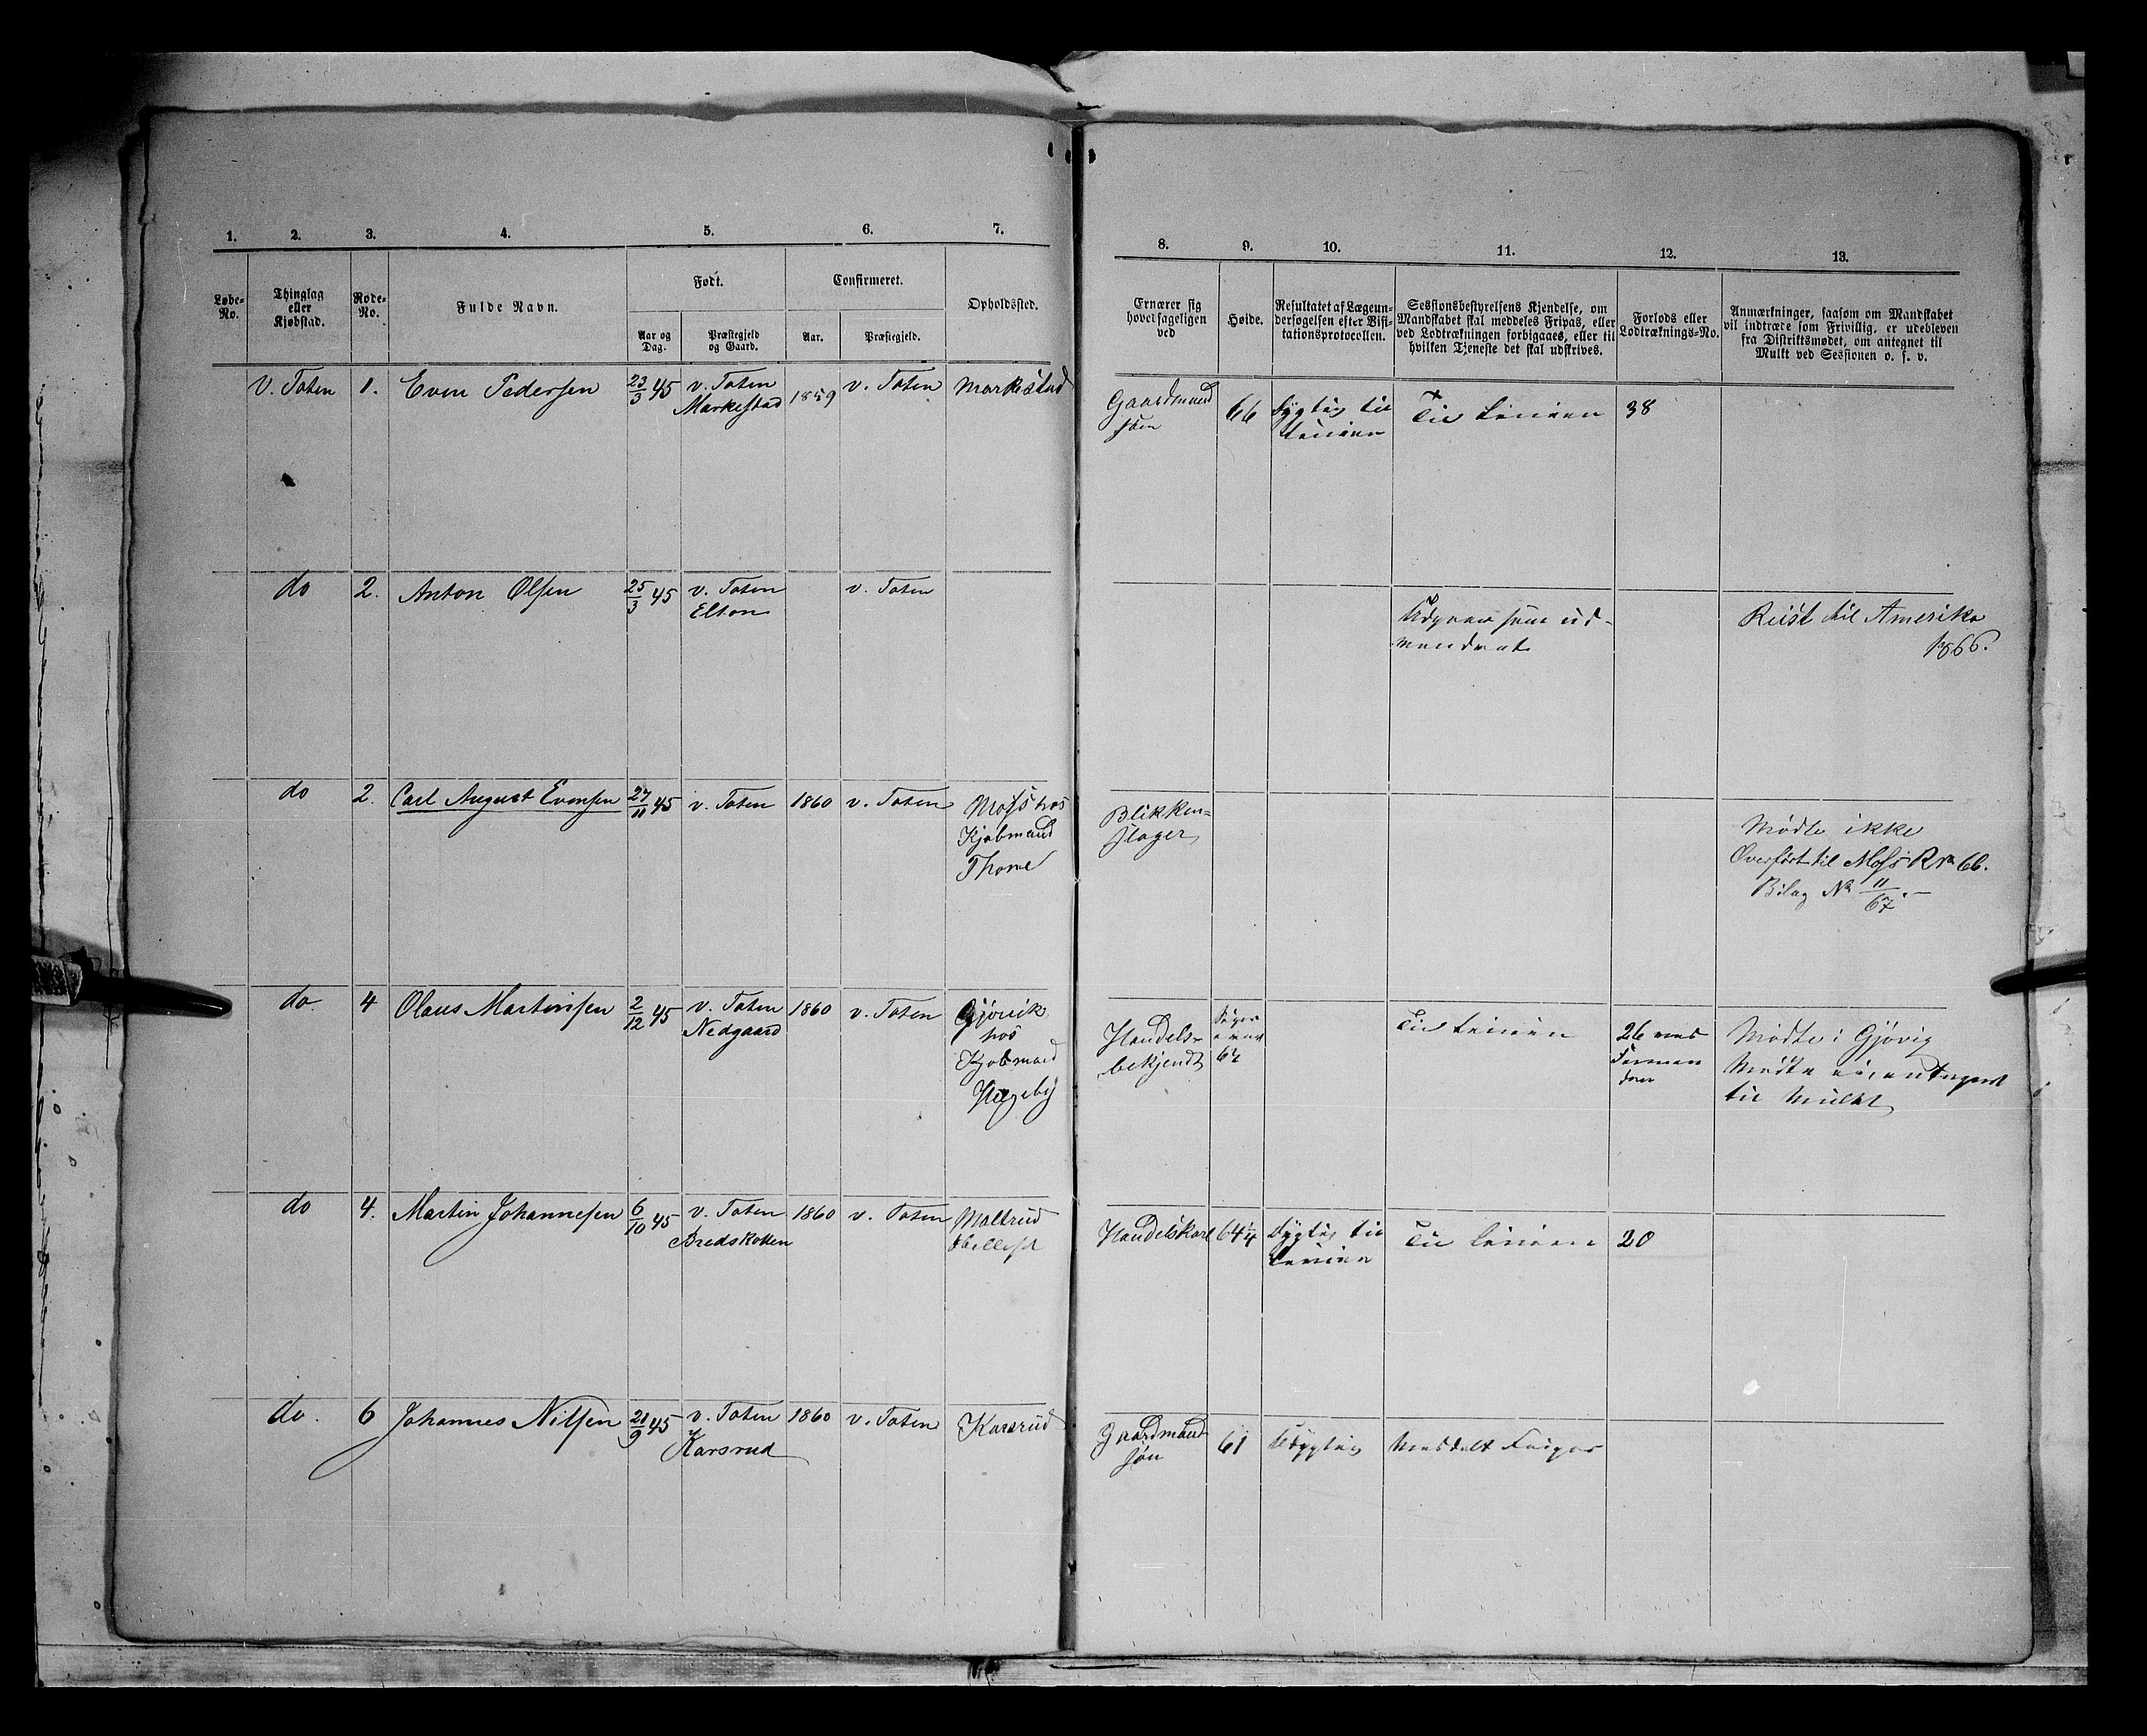 1. 2. 3. 4. 5. 6. 7.
Løbe-No. Thinglag eller Kjøbstad. Rode-No. Fulde Navn. Født. Confirmeret. Opholdssted.
Aar og Dag. Præstegjeld og Gaard. Aar. Præstegjeld.
V. Toten 1. Even Pedersen 23/3 45 v. Toten 1859 v. Toten Markestad
Markestad
do 2. Anton Olsen 25/3 45 v. Toten v. Toten
Elton
do 2. Carl August Evensen 27/11 45 v. Toten 1860 v. Toten Moss hos
Kjøbmand
Thorne
do 4 Olaus Martinsen 2/12 45 v. Toten 1860 v. Toten Gjøvik
Nedgaard hos
Kjøbmand
do 4. Martin Johannesen 6/10 45 v. Toten 1860 v. Toten Maltrud
Bredskotten
do. 6 Johannes Nilsen 21/9 45 v. Toten 1860 v. Toten Karsrud
Karsrud
8. 9. 10. 11. 12. 13.
Ernærer sig hovedsageligen ved
Høide.
Resultatet af Lægeundersøgelsen efter Visitationsprotocollen.
Sessionsbestyrelsens Kjendelse, om
Mandskabet skal meddeles Fripas, eller
ved Lodtrækningen forbigaaes, eller til
hvilken Tjeneste det skal udskrives.
Forlods eller
Lodtræknings-No.
Anmærkninger, saasom om Mandskabet
vil indtræde som Frivillig, er udebleven
fra Distriktsmødet, om antegnet til
Mulkt ved Sessionen o. s. v.
Gaardmand 66 Dygtig til Til Linien 38
søn Linien
Udgaaer som ud- Reist til Amerika
vandret 1866.
Blikken-
slager
Mødte ikke
Overført til Moss R No 66.
Bilag No 11/67.
Handels- Til Linien 26 Mødte i Gjøvig
bekjendt 63 Mødte ei, antegnet
til Mulkt
Handelskarl 64 1/4 Dygtig til Til Linien 20
Linien
Gaardmand 61 Udygtig Meddelt Fripas
søn